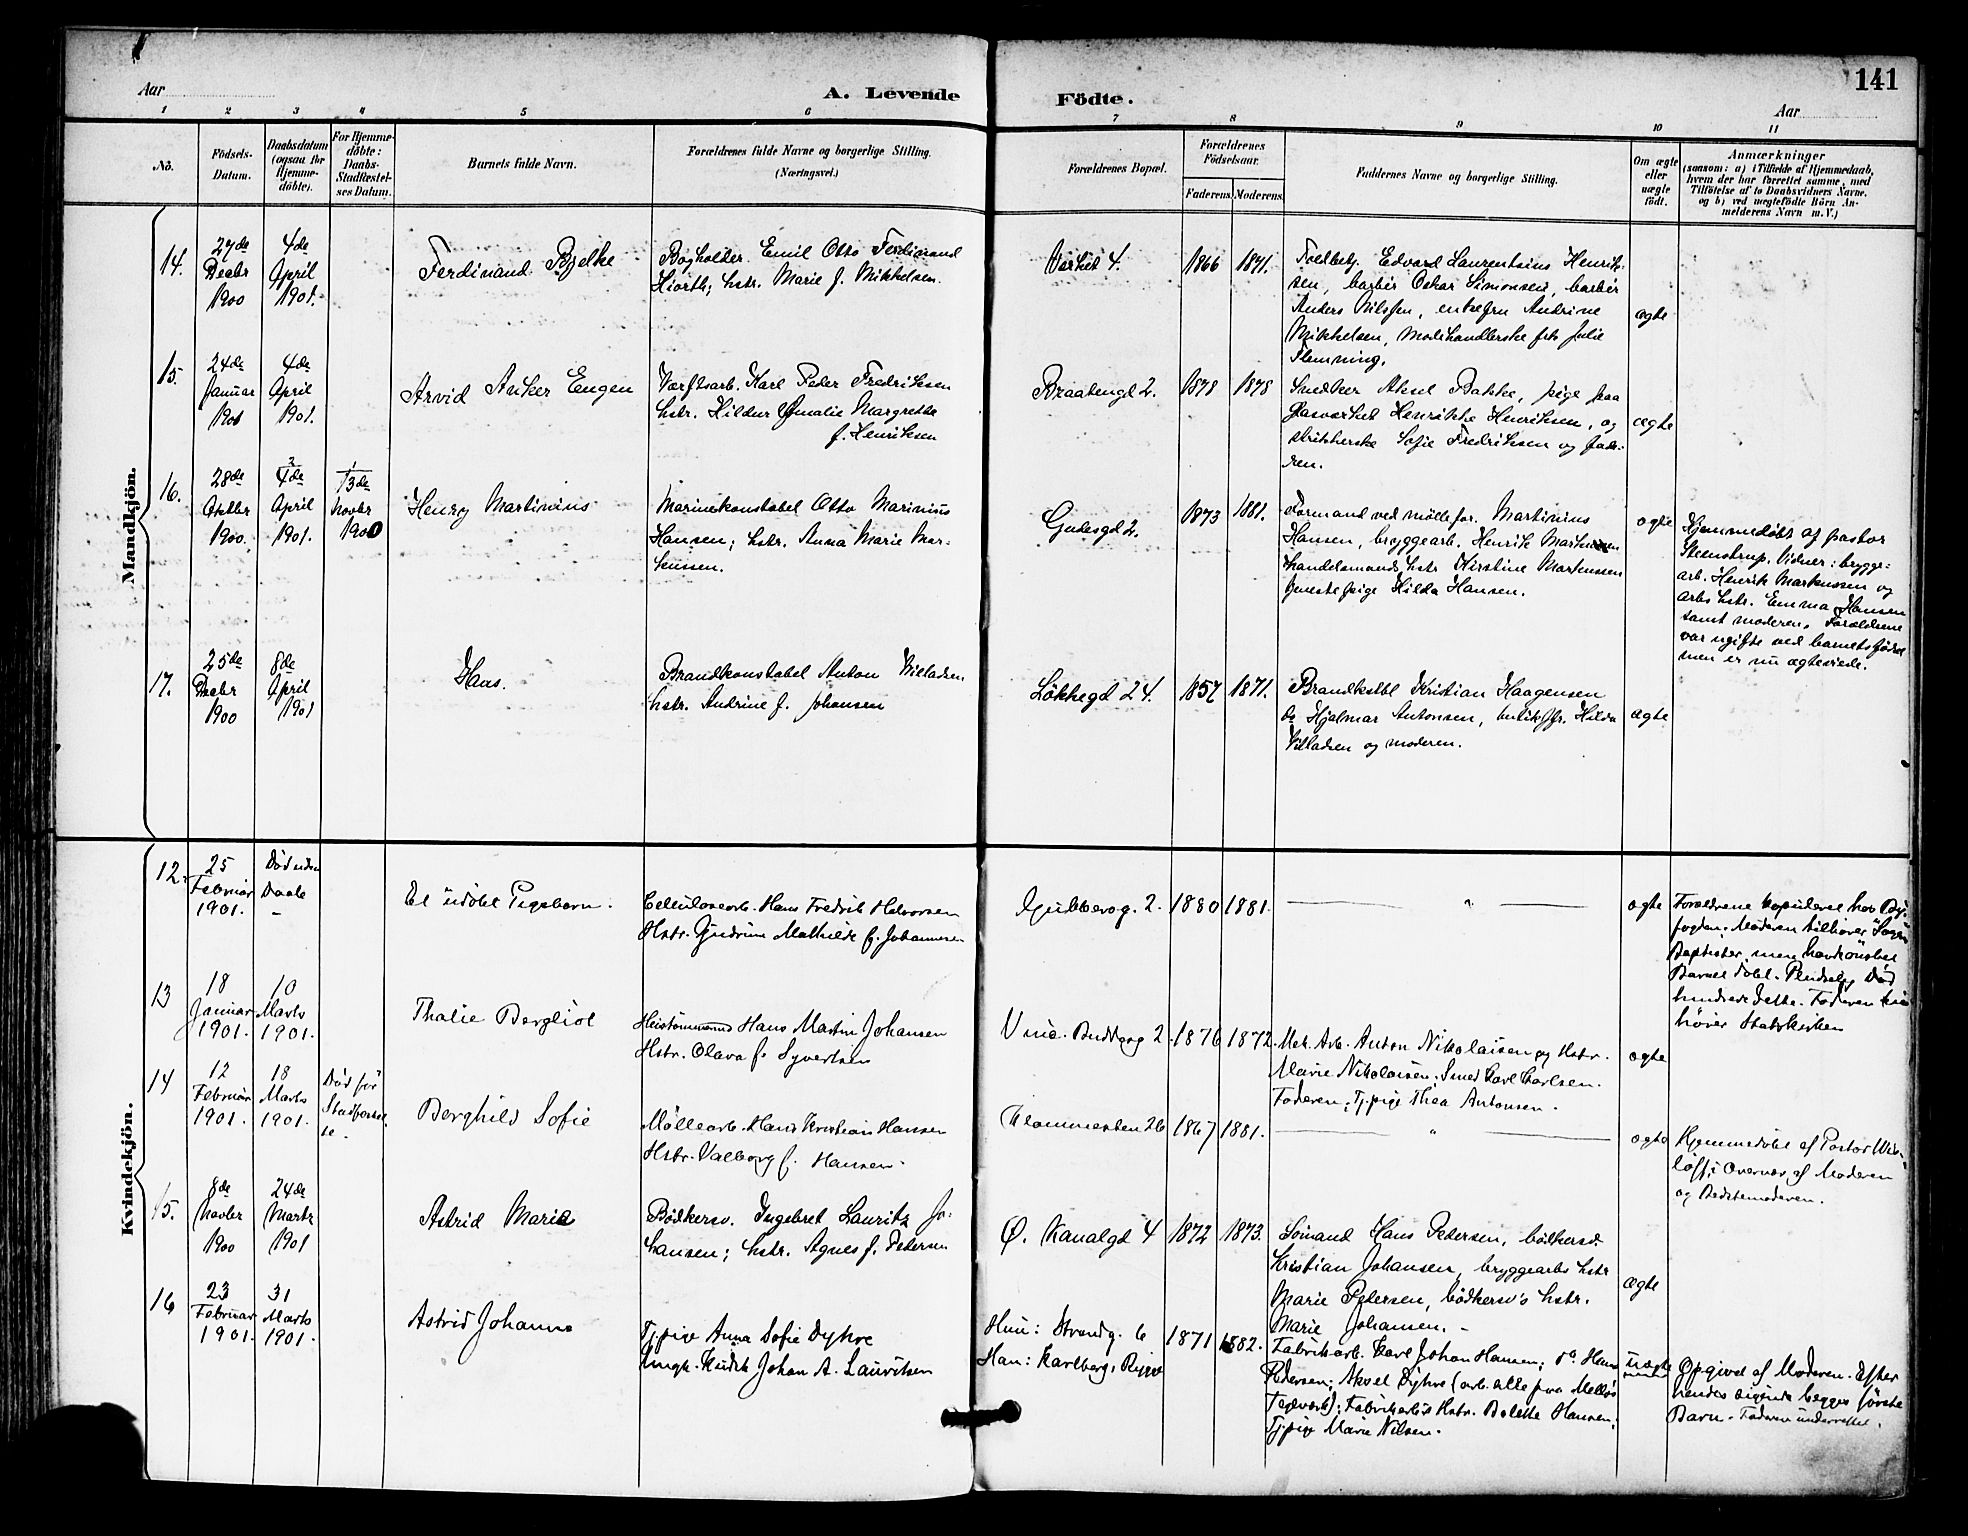 141
Aar
A. Levende
Födte.
Aar
1 2 3 4 5 6 7 8 9 10 11
No.
Födsels-
Datum.
Daabsdatum
(ogsaa for
Hjemme-
döbte).
For Hjemme-
döbte:
Daabs-
Stadfæstel-
ses Datum.
Barnets fulde Navn.
Forældrenes fulde Navne og borgerlige Stilling.
(Næringsvei.)
Forældrenes Bopæl.
Forældrenes
Födselsaar.
Faderens. Moderens.
Faddernes Navne og borgerlige Stilling.
Om ægte
eller
uægte
födt.
Anmærkninger
(saasom: a) i Tilfælde af Hjemmedaab,
hvem der har forrettet samme, med
Tilföielse af to Daabsvidners Navne.
og b) ved uægtefödte Börn An-
melderens Navn m. V.)
Mandkjön.
14.
27de
Decbr
1900
4de
April
1901.
Ferdinand Bjelke
Bogholder Emil Otto Ferdinand
Hiorth; hstr. Marie f. Mikkelsen.
Værket 4.
1866 1871.
Toldbetj. Edvard Laurentsius Henrik-
sen, barber Oskar Simonsen, barber
Anders Nilssen, enkefru Andrine
Mikkelsen, modehandlerske frk Julie
Flemming.
ægte
15.
24de
Januar
1901
4de
April
1901.
Arvid Anker Engen
Værftsarb. Karl Peder Fredriksen
hstr. Hildur Amalie Margrethe
f. Henriksen
Braatengd 2.
1878 1878
Snedker Aksel Bakke, pige paa
Glasværket Henrikke Henriksen, og
strikkerske Sofie Fredriksen og fade-
ren.
ægte
16.
28de
Oktbr
1900.
4de
April
1901.
13de
Novbr
1900
Henry Martinius
Marinekonstabel Otto Marinius
Hansen; hstr. Anna Marie Mar-
kussen.
Gudesgd 2.
1873 1881.
Formand ved møllefor. Martinius
Hansen, bryggearb. Henrik Markussen
handelsmands hstr Kirstine Markussen
tjenestepige Hilda Hansen.
ægte
Hjemmedøbt af pastor
Steenstrup. Vidner: brygge-
arb. Henrik Markussen og
arbs hstr. Emma Hansen
samt moderen. Forældrene
var ugifte ved barnets fødsel
men er nu ægteviede.
17.
25de
Decbr
1900
8de
April
1901
Haas.
Brandkonstabel Anton Villadsen
hstr. Andrine f. Johansen
Løkkegd 24.
1857 1871.
Brandkstbl Kristian Haagensen
do Hjalmar Antonsen, butikfr. Hilda
Villadsen og moderen.
ægte
Kvindekjön.
12.
25
Februar
1901.
Død uden
Daab
-
Et udöbt Pigebarn.
Cellulosearb. Hans Fredrik Halvorsen
Hstr. Gudrun Mathilde f. Johannesen
Guldbergg. 2.
1880 1881.
"
ægte
Forældrene kopuleret hos By-
fogden. Moderen tilhører
Baptister, men havde ønsket
Barnet døbt. Pludselig Død
hindrede dette. Faderen til-
hører Statskirken
13
18
Januar
1901.
10
Marts
1901.
Thalie Bergliot
Hans Martin Johansen
Hstr. Olava f. Syvertsen
1876 1872.
Mek. Arb. Anton Nikolaisen og Hstr.
Marie Nikolaisen; Smed Carl Carlsen.
Faderen; Tj.pige Thea Antonsen.
ægte
14
12
Februar
1901.
18
Marts
1901.
Død før
Stadfæstel-
se.
Borghild Sofie
Möllearb. Hans Kristian Hansen
Hstr. Valborg f. Hansen.
Glommesten 26
1867 1881.
"
ægte
Hjemmedøbt af Pastor Wis-
löff i Overvær af Moderen
og Bedstemoderen.
15.
8de
Novbr
1900
24de
Marts
1901
Astrid Marie
Bødkersv. Ingebret Lauritz Jo-
hansen; hstr. Agnes f. Petersen
Ø. Kanalgd 4
1872 1873.
Sømand Hans Pedersen, bødkersv.
Kristian Johansen, bryggearbs hstr
Marie Petersen, bødkersv's hstr.
Marie Johansen.
ægte
16
23
Februar
1901.
31
Marts
1901.
Astrid Johanne
Tj.pige Anna Sofie Dyhre
Ungk. Kudsk Johan A. Lauritsen
Hun: Strandg. 6
Han: Karlberg, Rygge
1871 1882.
Fabrikarb. Karl Johan Hansen; do Hans
Pedersen; Aksel Dyhre (arb. alle paa Melløs
Teglværk); Fabrikarb's Hstr. Bolette Hansen;
Tj.pige Marie Nilsen.
uægte
Opgivet af Moderen. Efter
hendes sigende begges første
Barn. Faderen underrettet.